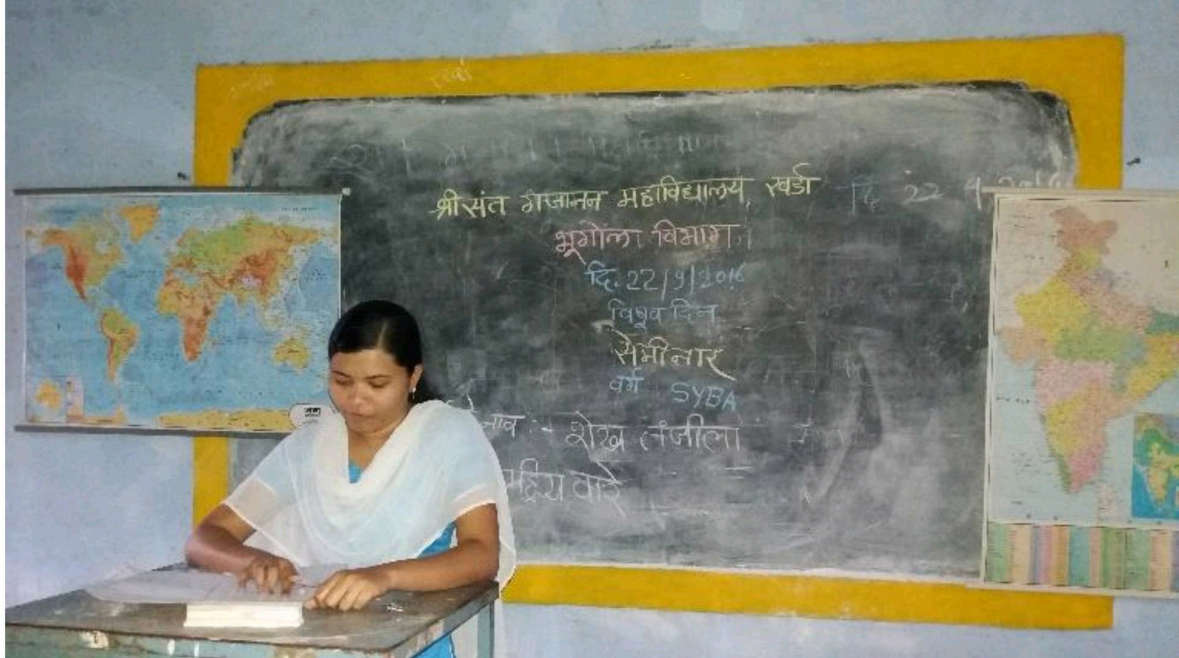 श्री संत गजानन महाविद्यालय, खर्डा
दि 22 9
भूगोल विभाग
दि. 22/9/2016
विषुव दिन
सेमीनार
वर्ग SYBA
नाव :- शेख तंजीला
वारे